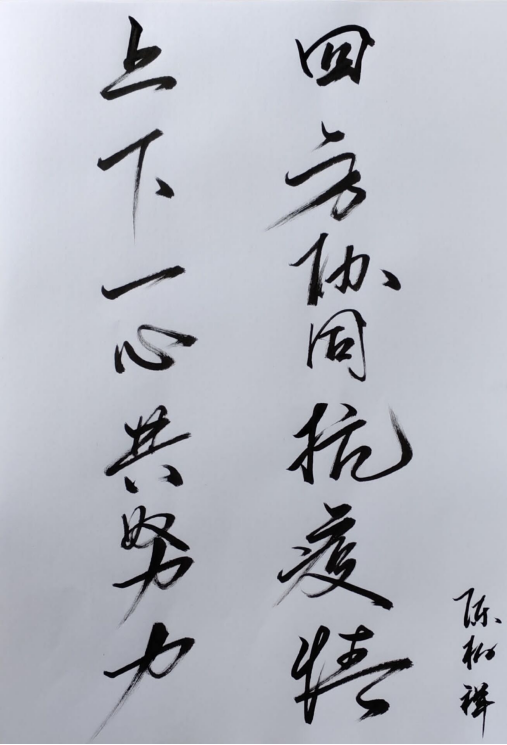 上下一心共努力
四方协同抗疫情
陈祥